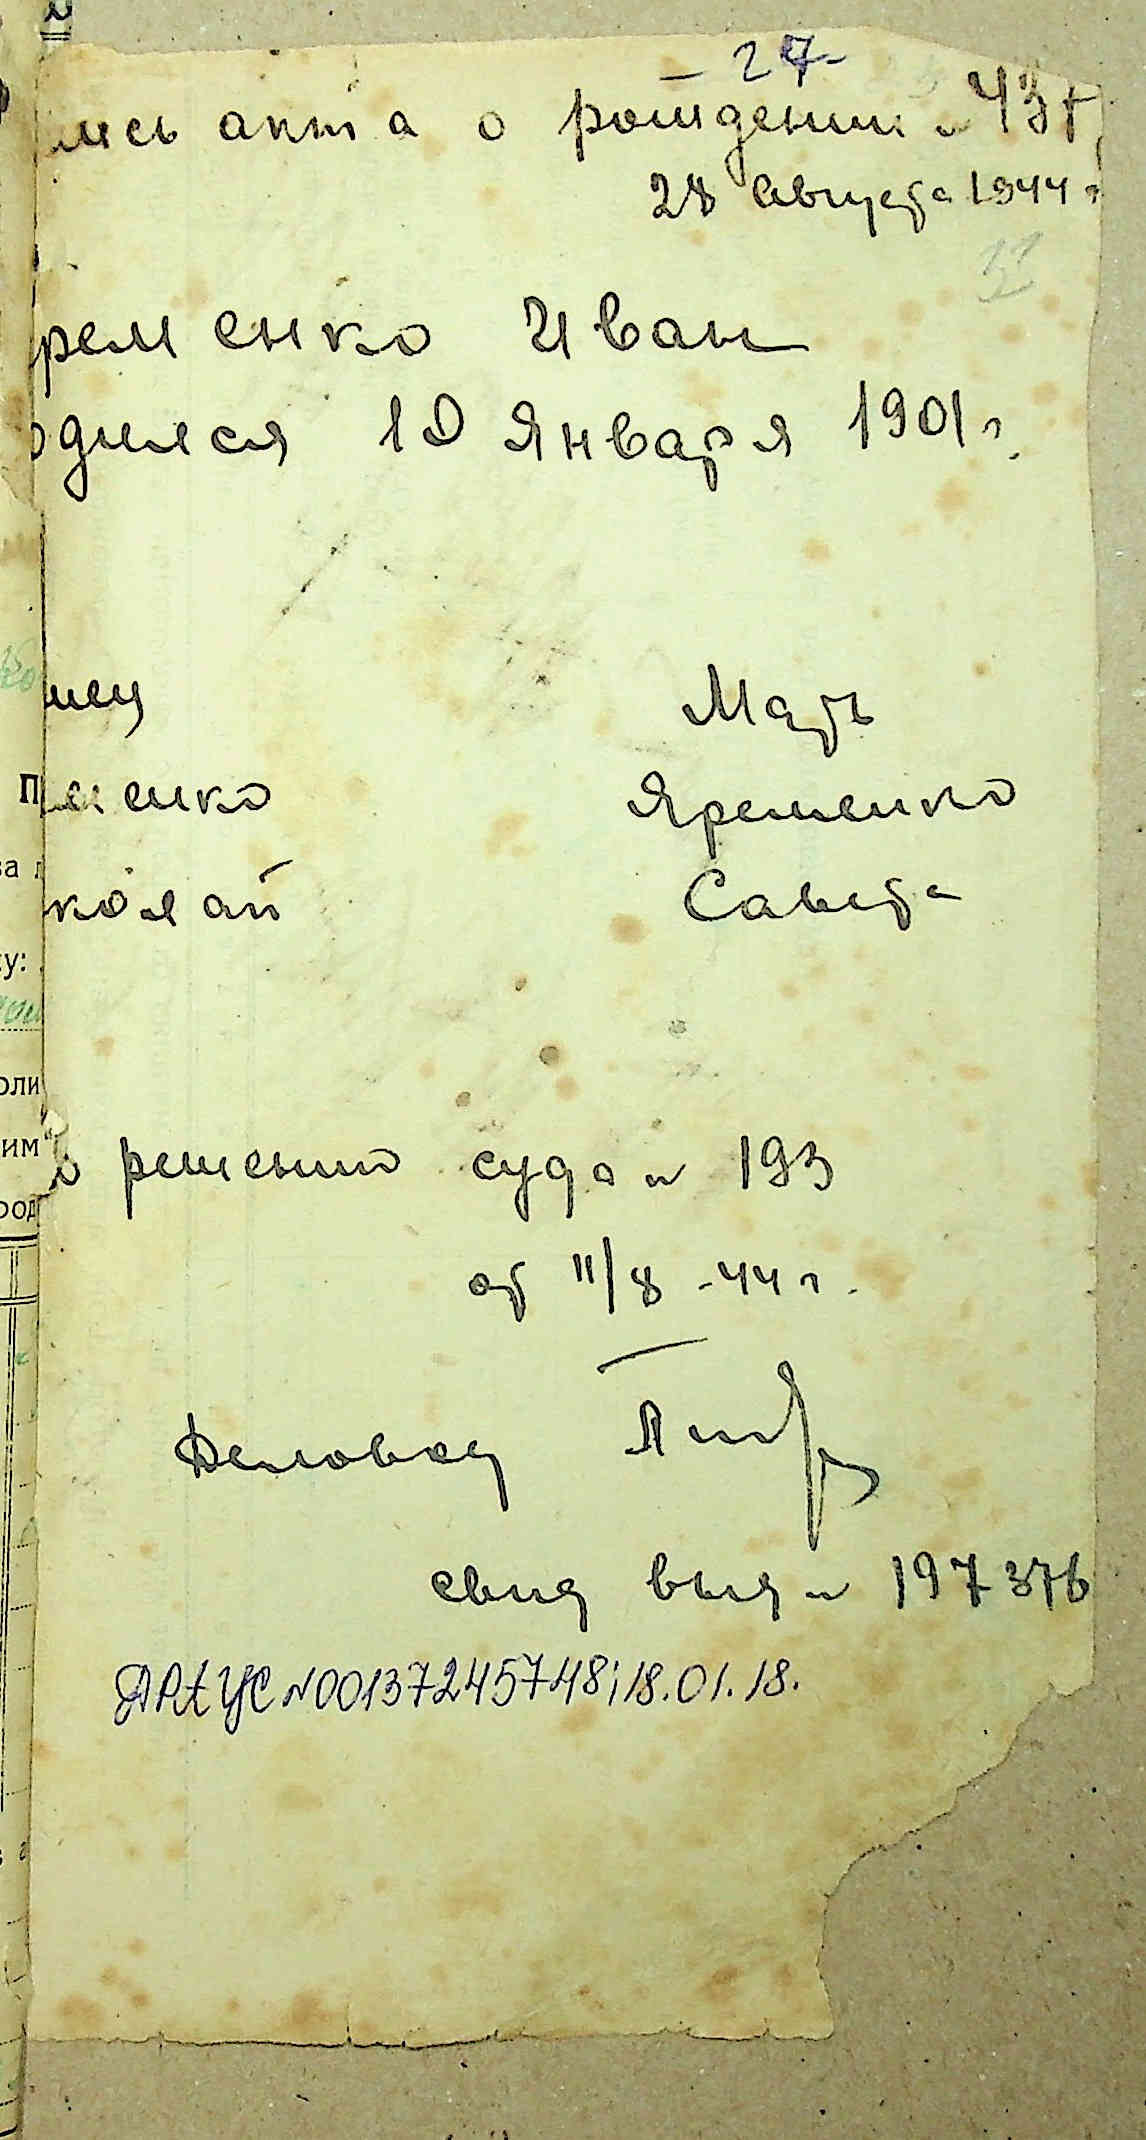 - 27 -
ись акта о рождении № 437
28 августа 1944 г
ременко Иван
одился 10 Января 1901 г.
Мать
менко Яременко
колай Савета
решению суда № 193
от 11/8 - 44 г.
Деловод
свид выд № 197376
АРАЦС N00137245748; 18.01.18.